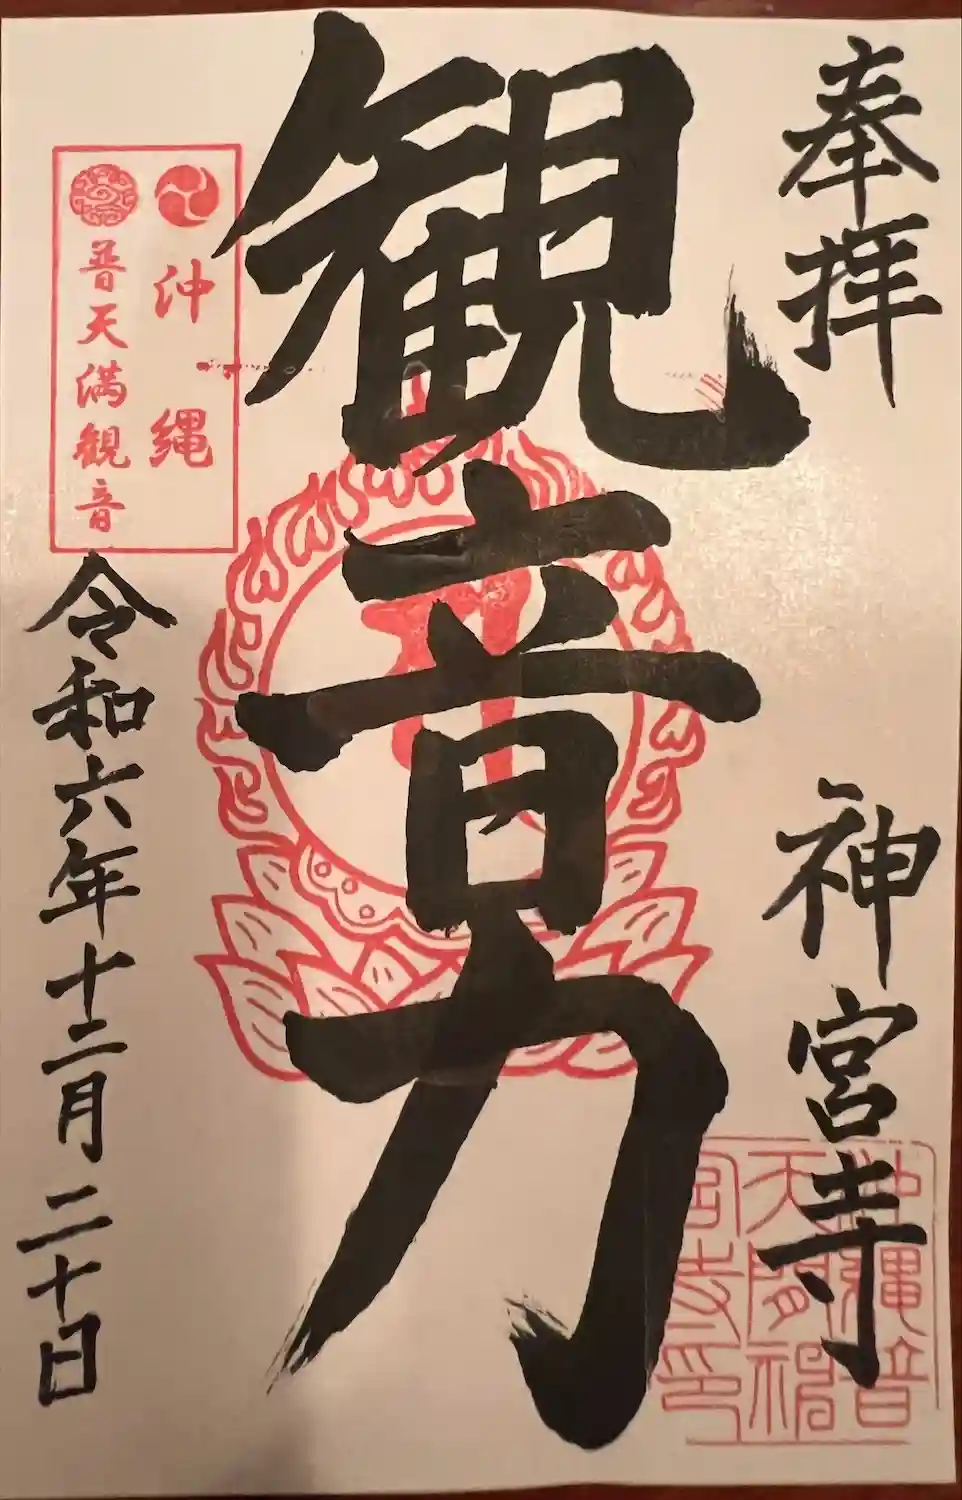 奉拝
神宮寺
観音力
沖縄
普天満観音
令和六年十二月二十日